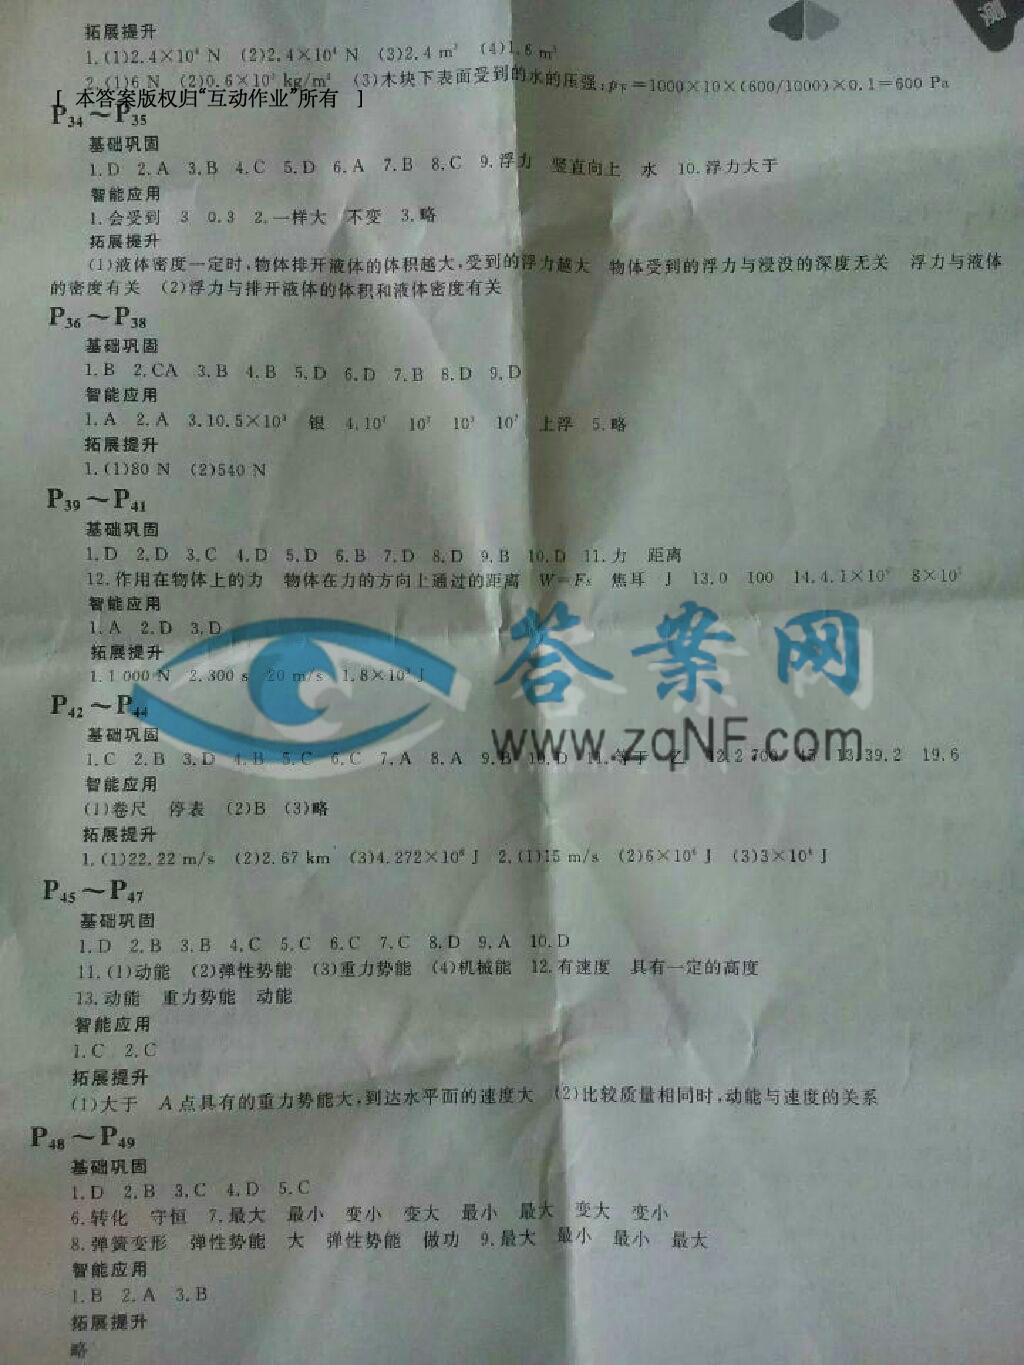 拓展提升
1.(1)2.4×10⁴ N (2)2.4×10⁴ N (3)2.4 m³ (4)1.6 m³
2.(1)6 N (2)0.6×10³ kg/m³ (3)木块下表面受到的水的压强:p下=1000×10×(600/1000)×0.1=600 Pa
[ 本答案版权归“互动作业”所有 ]
P34～P35
基础巩固
1.D 2.A 3.B 4.C 5.D 6.A 7.B 8.C 9.浮力 竖直向上 水 10.浮力大于
智能应用
1.会受到 3 0.3 2.一样大 不变 3.略
拓展提升
(1)液体密度一定时,物体排开液体的体积越大,受到的浮力越大 物体受到的浮力与浸没的深度无关 浮力与液体
的密度有关 (2)浮力与排开液体的体积和液体密度有关
P36～P38
基础巩固
1.B 2.CA 3.B 4.B 5.D 6.D 7.B 8.D 9.D
智能应用
1.A 2.A 3.10.5×10³ 银 4. 上浮 5.略
拓展提升
1.(1)80 N (2)540 N
P39～P41
基础巩固
1.D 2.D 3.C 4.D 5.D 6.B 7.D 8.D 9.B 10.D 11.力 距离
12.作用在物体上的力 物体在力的方向上通过的距离 W=Fs 焦耳 J 13.0 100 14.
智能应用
1.A 2.D 3.D
拓展提升
1.1 000 N 2.300 s 20 m/s
答案网
www.zqNF.com
P42～P44
基础巩固
1.C 2.B 3.D 4.B 5.C 6.C 7.A 8.A 9.B 10.D 11.等于 乙 12.2 700 45 13.39.2 19.6
智能应用
(1)卷尺 停表 (2)B (3)略
拓展提升
1.(1)22.22 m/s (2)2.67 km (3)4.272×10⁶ J 2.(1)15 m/s (2)6×10⁴ J (3)3×10⁴ J
P45～P47
基础巩固
1.D 2.B 3.B 4.C 5.C 6.C 7.C 8.D 9.A 10.D
11.(1)动能 (2)弹性势能 (3)重力势能 (4)机械能 12.有速度 具有一定的高度
13.动能 重力势能 动能
智能应用
1.C 2.C
拓展提升
(1)大于 A点具有的重力势能大,到达水平面的速度大 (2)比较质量相同时,动能与速度的关系
P48～P49
基础巩固
1.D 2.B 3.C 4.D 5.C
6.转化 守恒 7.最大 最小 变小 变大 最小 最大 变大 变小
8.弹簧变形 弹性势能 大 弹性势能 做功 9.最大 最小 最小 最大
智能应用
1.B 2.A 3.B
拓展提升
略
测